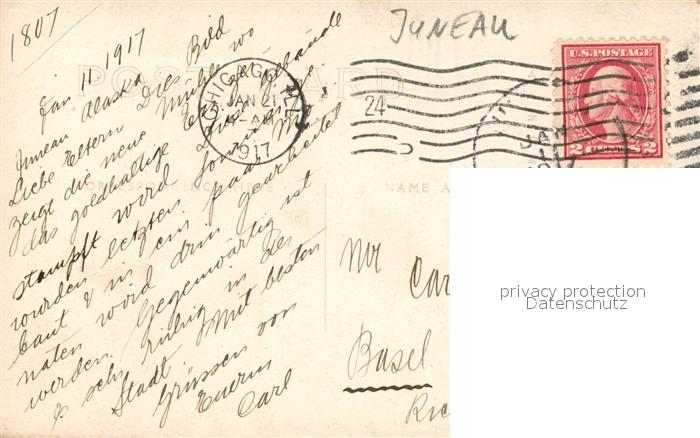 1807
JUNEAU
Jan 11 1917
Juneau Alaska
Liebe Eltern Dies Bild
zeigt die neue Mühle wo
das goldhaltige Erz
stampft wird
wurden letzten Sommer
baut & in ein paar Mo
naten wird drin gearbeitet
werden. Gegenwärtig ist
es sehr ruhig in der
Stadt. Mit besten
Grüssen von
Euerm
Carl
POST CARD
CHICAGO, ILL.
JAN 21
AM
1917
24
U.S. POSTAGE
2 2
JAN
NAME A
Mr Car
Basel
privacy protection
Datenschutz